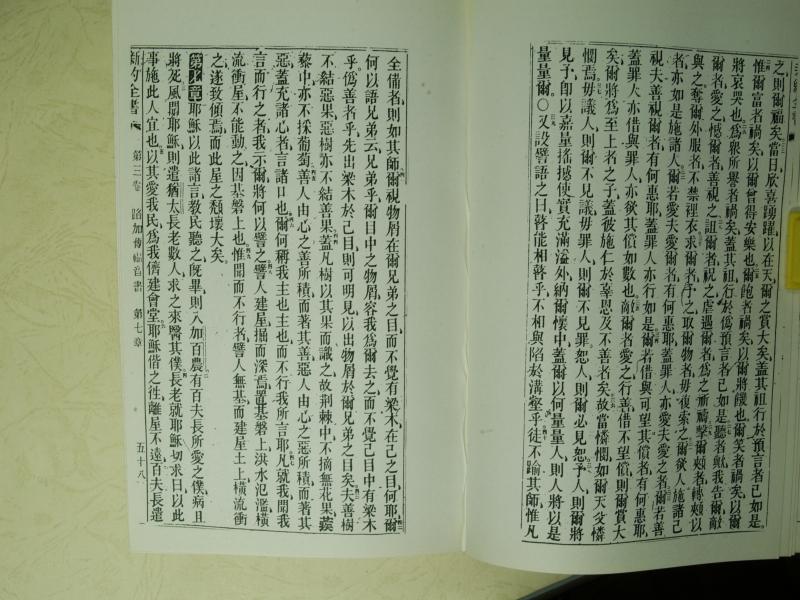 之則爾福矣當日欣喜踴躍以在天爾之賞大矣蓋其祖行於預言者已如是
惟爾富者禍矣以爾曾得安樂也爾飽者禍矣以爾將饑也爾笑者禍矣以爾
將哀哭也爲衆所譽者禍矣蓋其祖行於僞預言者已如是聽者歟我告爾敵
爾者愛之憾爾者善視之詛爾者祝之虐遇爾者爲之祈禱擊爾頰者轉頰以
與之奪爾外服者不禁裡衣求爾者予之取爾物者毋復索之爾欲人施諸己
者亦如是施諸人爾若愛夫愛爾者有何惠耶蓋罪人亦愛夫愛之者爾若善
視夫善視爾者有何惠耶蓋罪人亦行如是爾若借與可望其償者有何惠耶
蓋罪人亦借與罪人亦欲其償如數也敵爾者愛之行善借不望償則爾賞大
矣爾將爲至上者之子蓋彼施仁於辜恩及不善者矣故當憐憫如爾天父憐
憫焉毋議人則爾不見議毋罪人則爾不見罪恕人則爾必見恕予人則爾將
見予即以嘉量搖撼使實充滿溢外納爾懷中蓋爾以何量量人則人將以是
量量爾○又設譬語之曰瞽能相瞽乎不相與陷於溝壑乎徒不踰其師惟凡
全備者則如其師爾視物屑在爾兄弟之目而不覺有梁木在己之目何耶爾
何以語兄弟云兄弟乎爾目中之物屑容我爲爾去之而不覺己目中有梁木
乎僞善者乎先出梁木於己目則可明見以出物屑於爾兄弟之目矣夫善樹
不結惡果惡樹亦不結善果蓋凡樹以其果而識之故荆棘中不摘無花果蒺
藜中亦不採葡萄善人由心之善所積而著其善惡人由心之惡所積而著其
惡蓋充諸心者言諸口也爾何稱我主也主也而不行我所言耶凡就我聞我
言而行之者我示爾將何以譬之譬人建屋掘而深焉置基磐上洪水氾濫橫
流衝屋不能動之因基磐上也惟聞而不行者譬人無基而建屋土上橫流衝
之遂致傾焉而此屋之頹壞大矣
第七章耶穌以此諸言教民聽之旣畢則入加百農有百夫長所愛之僕病且
將死風聞耶穌則遣猶太長老數人求之來醫其僕長老就耶穌切求曰以此
事施此人宜也以其愛我民爲我儕建會堂耶穌偕之往離屋不遠百夫長遣
新約全書 第三卷 路加傳福音書 第七章 五十八